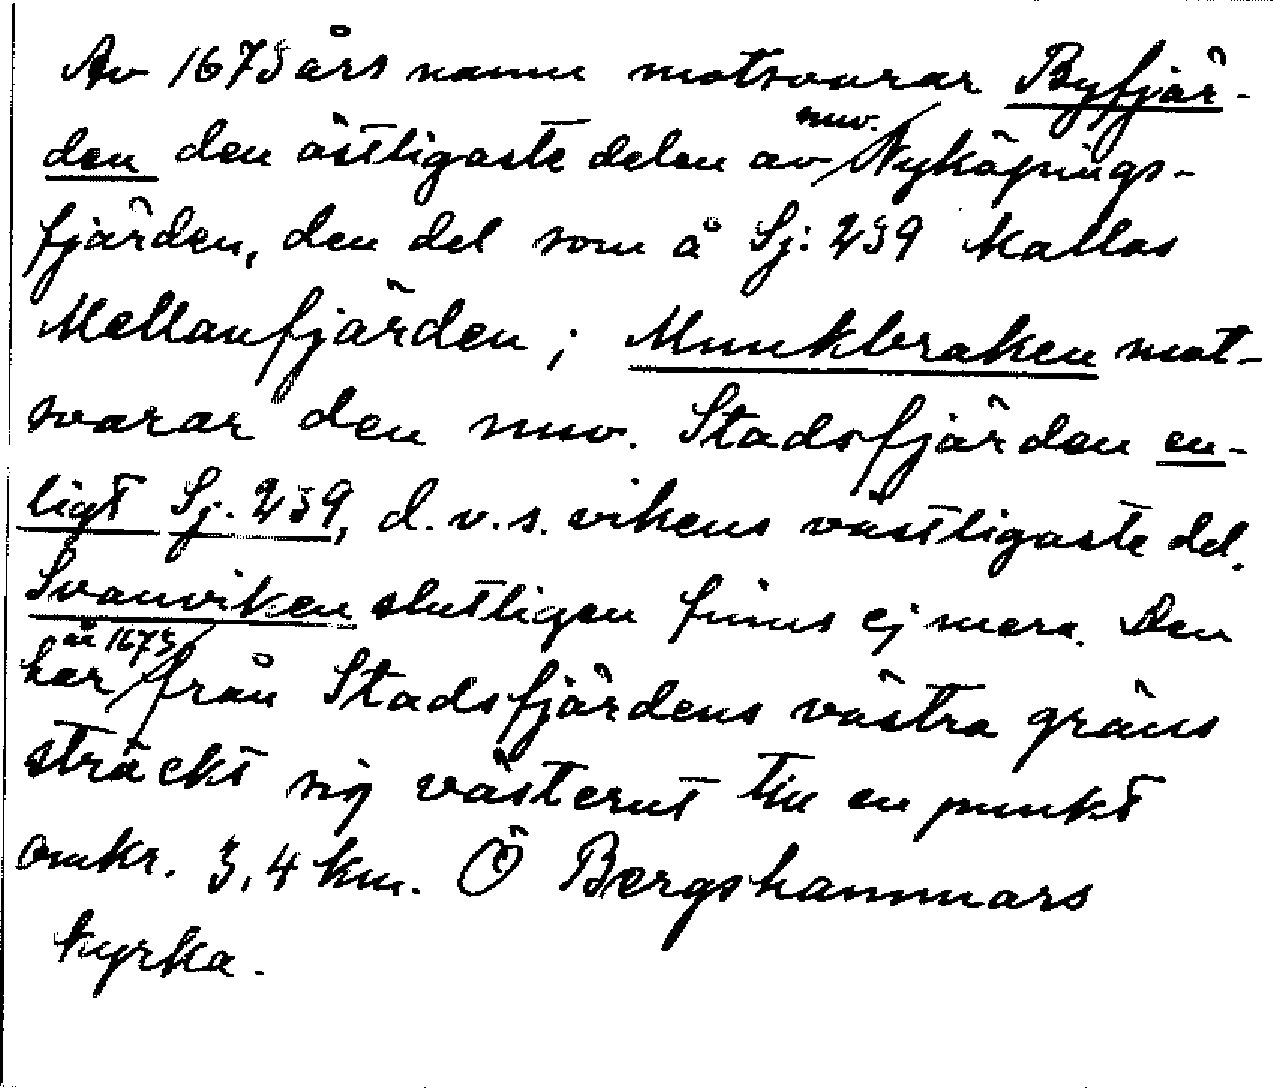 Av 1673 års namn motsvarar Byfjär-
den den östligaste delen av nuv. Nyköpings-
fjärden, den del som å Sj: 239 kallas
Mellanfjärden; Munkbraken mot-
svarar den nuv. Stadsfjärden en-
ligt Sj. 239, d.v.s. vikens västligaste del.
Svanviken slutligen finns ej mera. Den
har år 1673 från Stadsfjärdens västra gräns
sträckt sig västerut till en punkt
omkr. 3,4 km. Ö Bergshammars
kyrka.